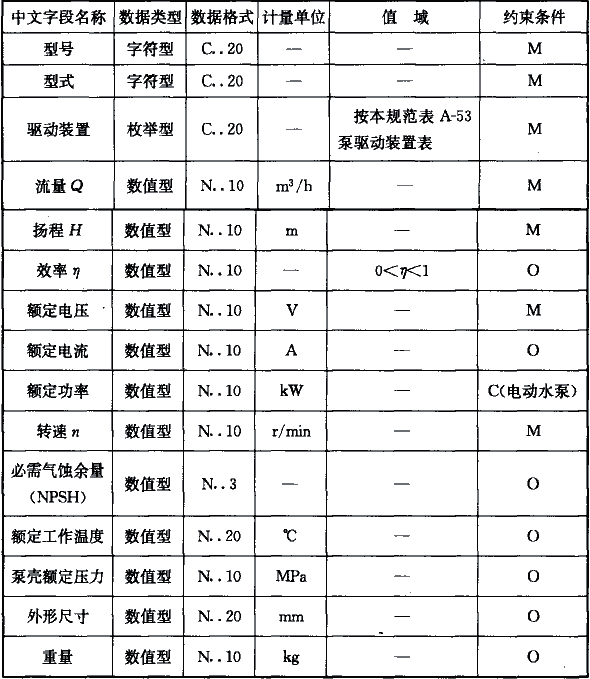 中文字段名称 数据类型 数据格式 计量单位 值 域 约束条件
型号 字符型 C..20 — — M
型式 字符型 C..20 — — M
驱动装置 枚举型 C..20 — 按本规范表 A-53 M
泵驱动装置表
流量 Q 数值型 N..10 m³/h — M
扬程 H 数值型 N..10 m — M
效率 η 数值型 N..10 — 0<η<1 O
额定电压 数值型 N..10 V — M
额定电流 数值型 N..10 A — O
额定功率 数值型 N..10 kW — C(电动水泵)
转速 n 数值型 N..10 r/min — M
必需气蚀余量 数值型 N..3 — — O
(NPSH)
额定工作温度 数值型 N..20 ℃ — O
泵壳额定压力 数值型 N..10 MPa — O
外形尺寸 数值型 N..20 mm — O
重量 数值型 N..10 kg — O